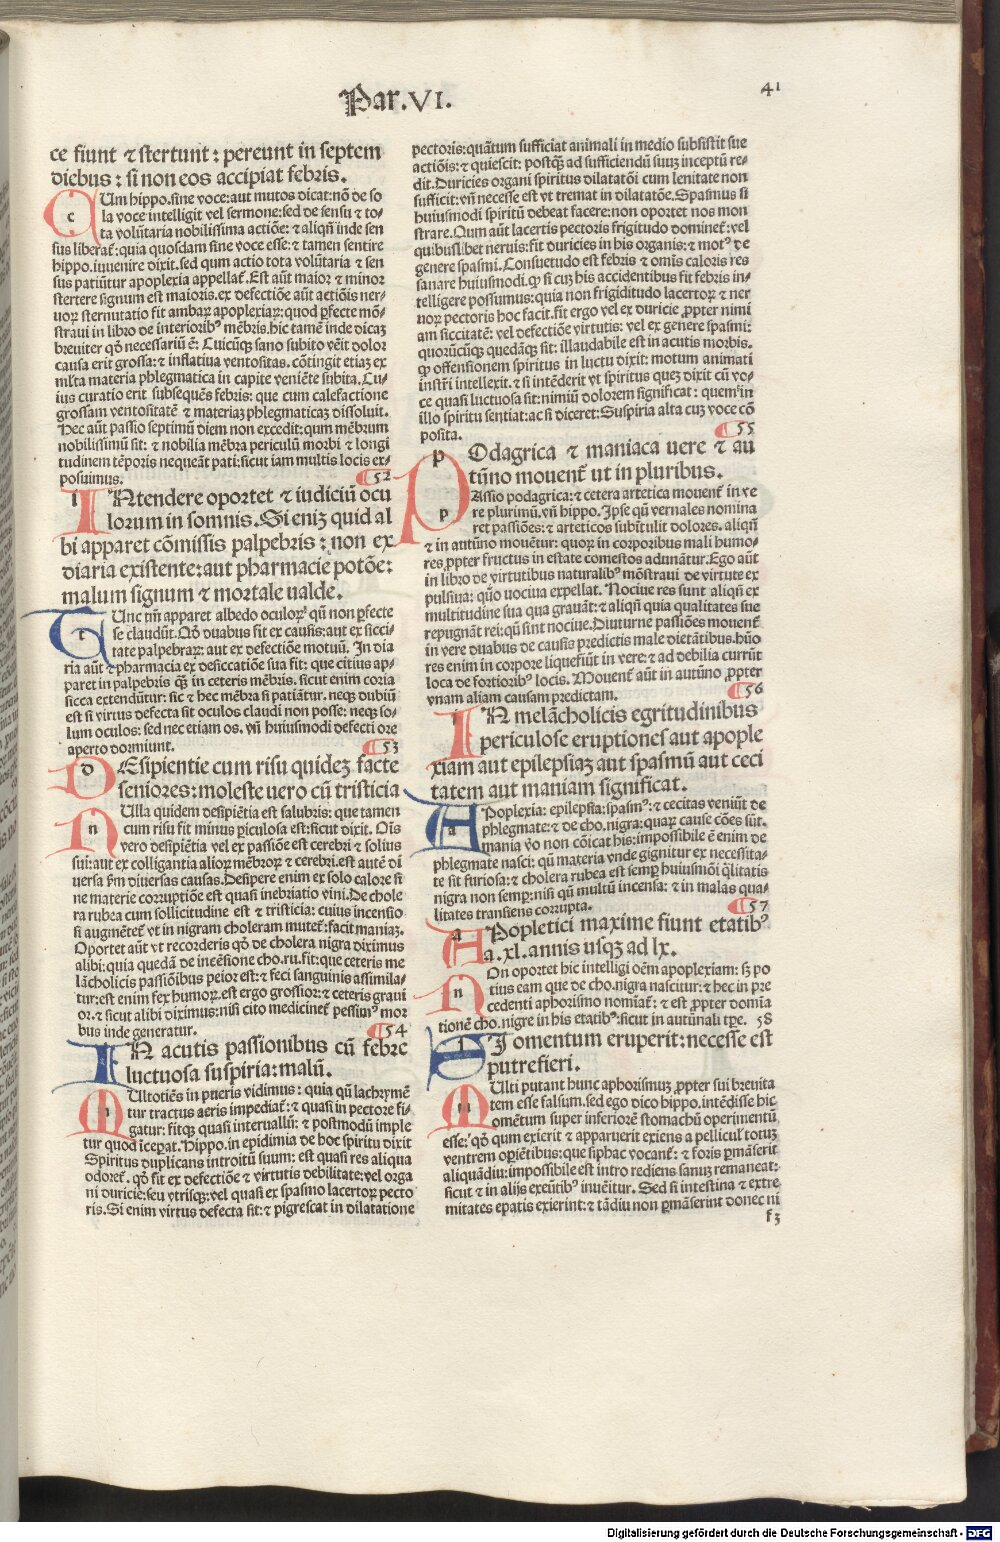 Par.VI.
41
ce fiunt ⁊ stertunt: pereunt in septem
diebus: si non eos accipiat febris.
CUm hippo. sine voce: aut mutos dicat: nō de so
la voce intelligit vel sermone: sed de sensu ⁊ to-
ta volūtaria nobilissima actiōe: ⁊ aliqn̄ inde sen
sus liberat̄: quia quosdam sine voce esse: ⁊ tamen sentire
hippo. iuuenire dixit. sed qum actio tota volūtaria ⁊ sen
sus patiūtur apoplexia appellat̄. Est aūt maior ⁊ minor
stertere signum est maioris. ex defectiōe aūt actiōis ner-
uoꝝ sternutatio fit ambaꝝ apoplexiaꝝ: quod ꝑfecte mō-
straui in libro de interioribꝰ mēbris. hic tamē inde dicaꝫ
breuiter qō necessariū ē: Cuicūqꝫ sano subito vēit dolor
causa erit grossa: ⁊ inflatiua ventositas. cōtingit etiaꝫ ex
ml̄ta materia phlegmatica in capite veniēte subita. Cu-
ius curatio erit subsequēs febris: que cum calefactione
grossam ventositatē ⁊ materiaꝫ phlegmaticaꝫ dissoluit.
Hec aūt passio septimū diem non excedit: qum mēbrum
nobilissimū sit: ⁊ nobilia mēbra periculū morbi ⁊ longi
tudinem tēporis nequeāt pati: sicut iam multis locis ex-
posuimus. ¶ 52
INtendere oportet ⁊ iudiciū ocu
lorum in somnis. Si eniꝫ quid al
bi apparet cōmissis palpebris: non ex
diaria existente: aut pharmacie potōe:
malum signum ⁊ mortale ualde.
TUnc tm̄ apparet albedo oculoꝝ qn̄ non ꝑfecte
se claudūt. Qō duabus fit ex causis: aut ex sicci-
tate palpebraꝝ: aut ex defectiōe motuū. In dia
ria aūt ⁊ pharmacia ex desiccatiōe sua fit: que citius ap-
paret in palpebris qꝫ in ceteris mēbris. sicut enim coria
sicca extendūtur: sic ⁊ hec mēbra si patiātur. neqꝫ dubiū
est si virtus defecta sit oculos claudi non posse: neqꝫ so-
lum oculos: sed nec etiam os. vn̄ huiusmodi defecti ore
aperto dormiunt. ¶ 53
DEsipientie cum risu quideꝫ facte
seniores: moleste uero cū tristicia
NUlla quidem desipiētia est salubris: que tamen
cum risu fit minus ꝑiculosa est: sicut dixit. Oīs
vero desipiētia vel ex passiōe est cerebri ⁊ solius
sui: aut ex colligantia alioꝝ mēbroꝝ ⁊ cerebri. est autē di
uersa ẜm diuersas causas. Desipere enim ex solo calore si
ne materie corruptiōe est quasi inebriatio vini. De chole
ra rubea cum sollicitudine est ⁊ tristicia: cuius incensio
si augmētet̄ vt in nigram choleram mutet̄: facit maniaꝫ.
Oportet aūt vt recorderis qō de cholera nigra diximus
alibi: quia quedā de incēsione cho. ru. fit: que ceteris me
lācholicis passiōibus peior est: ⁊ feci sanguinis assimila-
tur: est enim fex humoꝝ. est ergo grossior: ⁊ ceteris graui
or. ⁊ sicut alibi diximus: nisi cito medicinet̄ pessimꝰ mor
bus inde generatur. ¶ 54
IN acutis passionibus cū febre
luctuosa suspiria: malū.
MUltotiēs in pueris vidimus: quia qn̄ lachrymē
tur tractus aeris impediat̄: ⁊ quasi in pectore fi-
gatur: fitqꝫ quasi interuallū: ⁊ postmodū imple
tur quod īceꝑat. Hippo. in epidimia de hoc spiritu dixit
Spiritus duplicans introitū suum: est quasi res aliqua
odoret̄. qō fit ex defectiōe ⁊ virtutis debilitate: vel orga
ni duricie: seu vtrisqꝫ: vel quasi ex spasmo lacertoꝝ pecto
ris. Si enim virtus defecta sit: ⁊ pigrescat in dilatatione
pectoris: quātum sufficiat animali in medio subsistit sue
actiōis: ⁊ quiescit: postqꝫ ad sufficiendū suuꝫ inceptū re-
dit. Duricies organi spiritus dilatatōi cum lenitate non
sufficit: vn̄ necesse est vt tremat in dilatatōe. Spasmus si
huiusmodi spiritū debeat facere: non oportet nos mon
strare. Qum aūt lacertis pectoris frigitudo dominet̄: vel
quibuslibet neruis: fit duricies in his organis: ⁊ motꝰ de
genere spasmi. Consuetudo est febris ⁊ omīs caloris res
sanare huiusmodi. qꝫ si cuꝫ his accidentibus fit febris in-
telligere possumus: quia non frigiditudo lacertoꝝ ⁊ ner
uoꝝ pectoris hoc facit. fit ergo vel ex duricie ꝓpter nimi
am siccitatē: vel defectiōe virtutis: vel ex genere spasmi:
quorūcūqꝫ quedāqꝫ sit: illaudabile est in acutis morbis.
qꝫ offensionem spiritus in luctu dixit: motum animati
instrī intellexit. ⁊ si intēderit vt spiritus queꝫ dixit cū vo-
ce quasi luctuosa sit: nimiū dolorem significat: quem in
illo spiritu sentiat: ac si diceret: Suspiria alta cuꝫ voce cō
posita. ¶ 55
POdagrica ⁊ maniaca uere ⁊ au
tūno mouent̄ ut in pluribus.
PAssio podagrica: ⁊ cetera artetica mouent̄ in ve
re plurimū. vn̄ hippo. Ipse qn̄ vernales nomina
ret passiōes: ⁊ arteticos subītulit dolores. aliqn̄
⁊ in autūno mouētur: quoꝝ in corporibus mali humo-
res ꝓpter fructus in estate comestos adunātur. Ego aūt
in libro de virtutibus naturalibꝰ mōstraui de virtute ex
pulsiua: quō nociua expellat. Nociue res sunt aliqn̄ ex
multitudine sua qua grauāt: ⁊ aliqn̄ quia qualitates sue
repugnāt rei: qn̄ sint nociue. Diuturne passiōes mouent̄
in vere duabus de causis predictis male dietātibus. hūo
res enim in corpore liquefiūt in vere: ⁊ ad debilia currūt
loca de fortioribꝰ locis. Mouent̄ aūt in autūno ꝓpter
vnam aliam causam predictam. ¶ 56
IN melācholicis egritudinibus
periculose eruptiones aut apople
xiam aut epilepsiaꝫ aut spasmū aut ceci
tatem aut maniam significat.
APoplexia: epilepsia: spasmꝰ: ⁊ cecitas veniūt de
phlegmate: ⁊ de cho. nigra: quaꝝ cause cōes sūt.
mania v̊o non cōicat his: impossibile ē enim de
phlegmate nasci: qn̄ materia vnde gignitur ex necessita-
te sit furiosa: ⁊ cholera rubea est semꝑ huiusmōi q̄litatis
nigra non semꝑ: nisi qn̄ multū incensa: ⁊ in malas qua-
litates transiens corrupta. ¶ 57
APopletici maxime fiunt etatibꝰ
a .xl. annis usqꝫ ad lx.
NOn oportet hic intelligi oēm apoplexiam: sꝫ po
tius eam que de cho. nigra nascitur: ⁊ hec in pre
cedenti aphorismo nomīat̄: ⁊ est ꝓpter domīa
tionē cho. nigre in his etatibꝰ: sicut in autūnali tꝑe. 58
SI omentum eruperit: necesse est
putrefieri.
MUlti putant hunc aphorismuꝫ ꝓpter sui breuita
tem esse falsum. sed ego dico hippo. intēdisse hic
omētum super inferiorē stomachū operimentū
esse: qō qum exierit ⁊ apparuerit exiens a pelliculꝭ totuꝫ
ventrem opriētibus: que siphac vocant̄: ⁊ foris ꝑmāserit
aliquādiu: impossibile est intro rediens sanuꝫ remaneat:
sicut ⁊ in alijs exeūtibꝰ inuēitur. Sed si intestina ⁊ extre
mitates epatis exierint: ⁊ tādiu non ꝑmāserint donec ni
f3
Digitalisierung gefördert durch die Deutsche Forschungsgemeinschaft - DFG